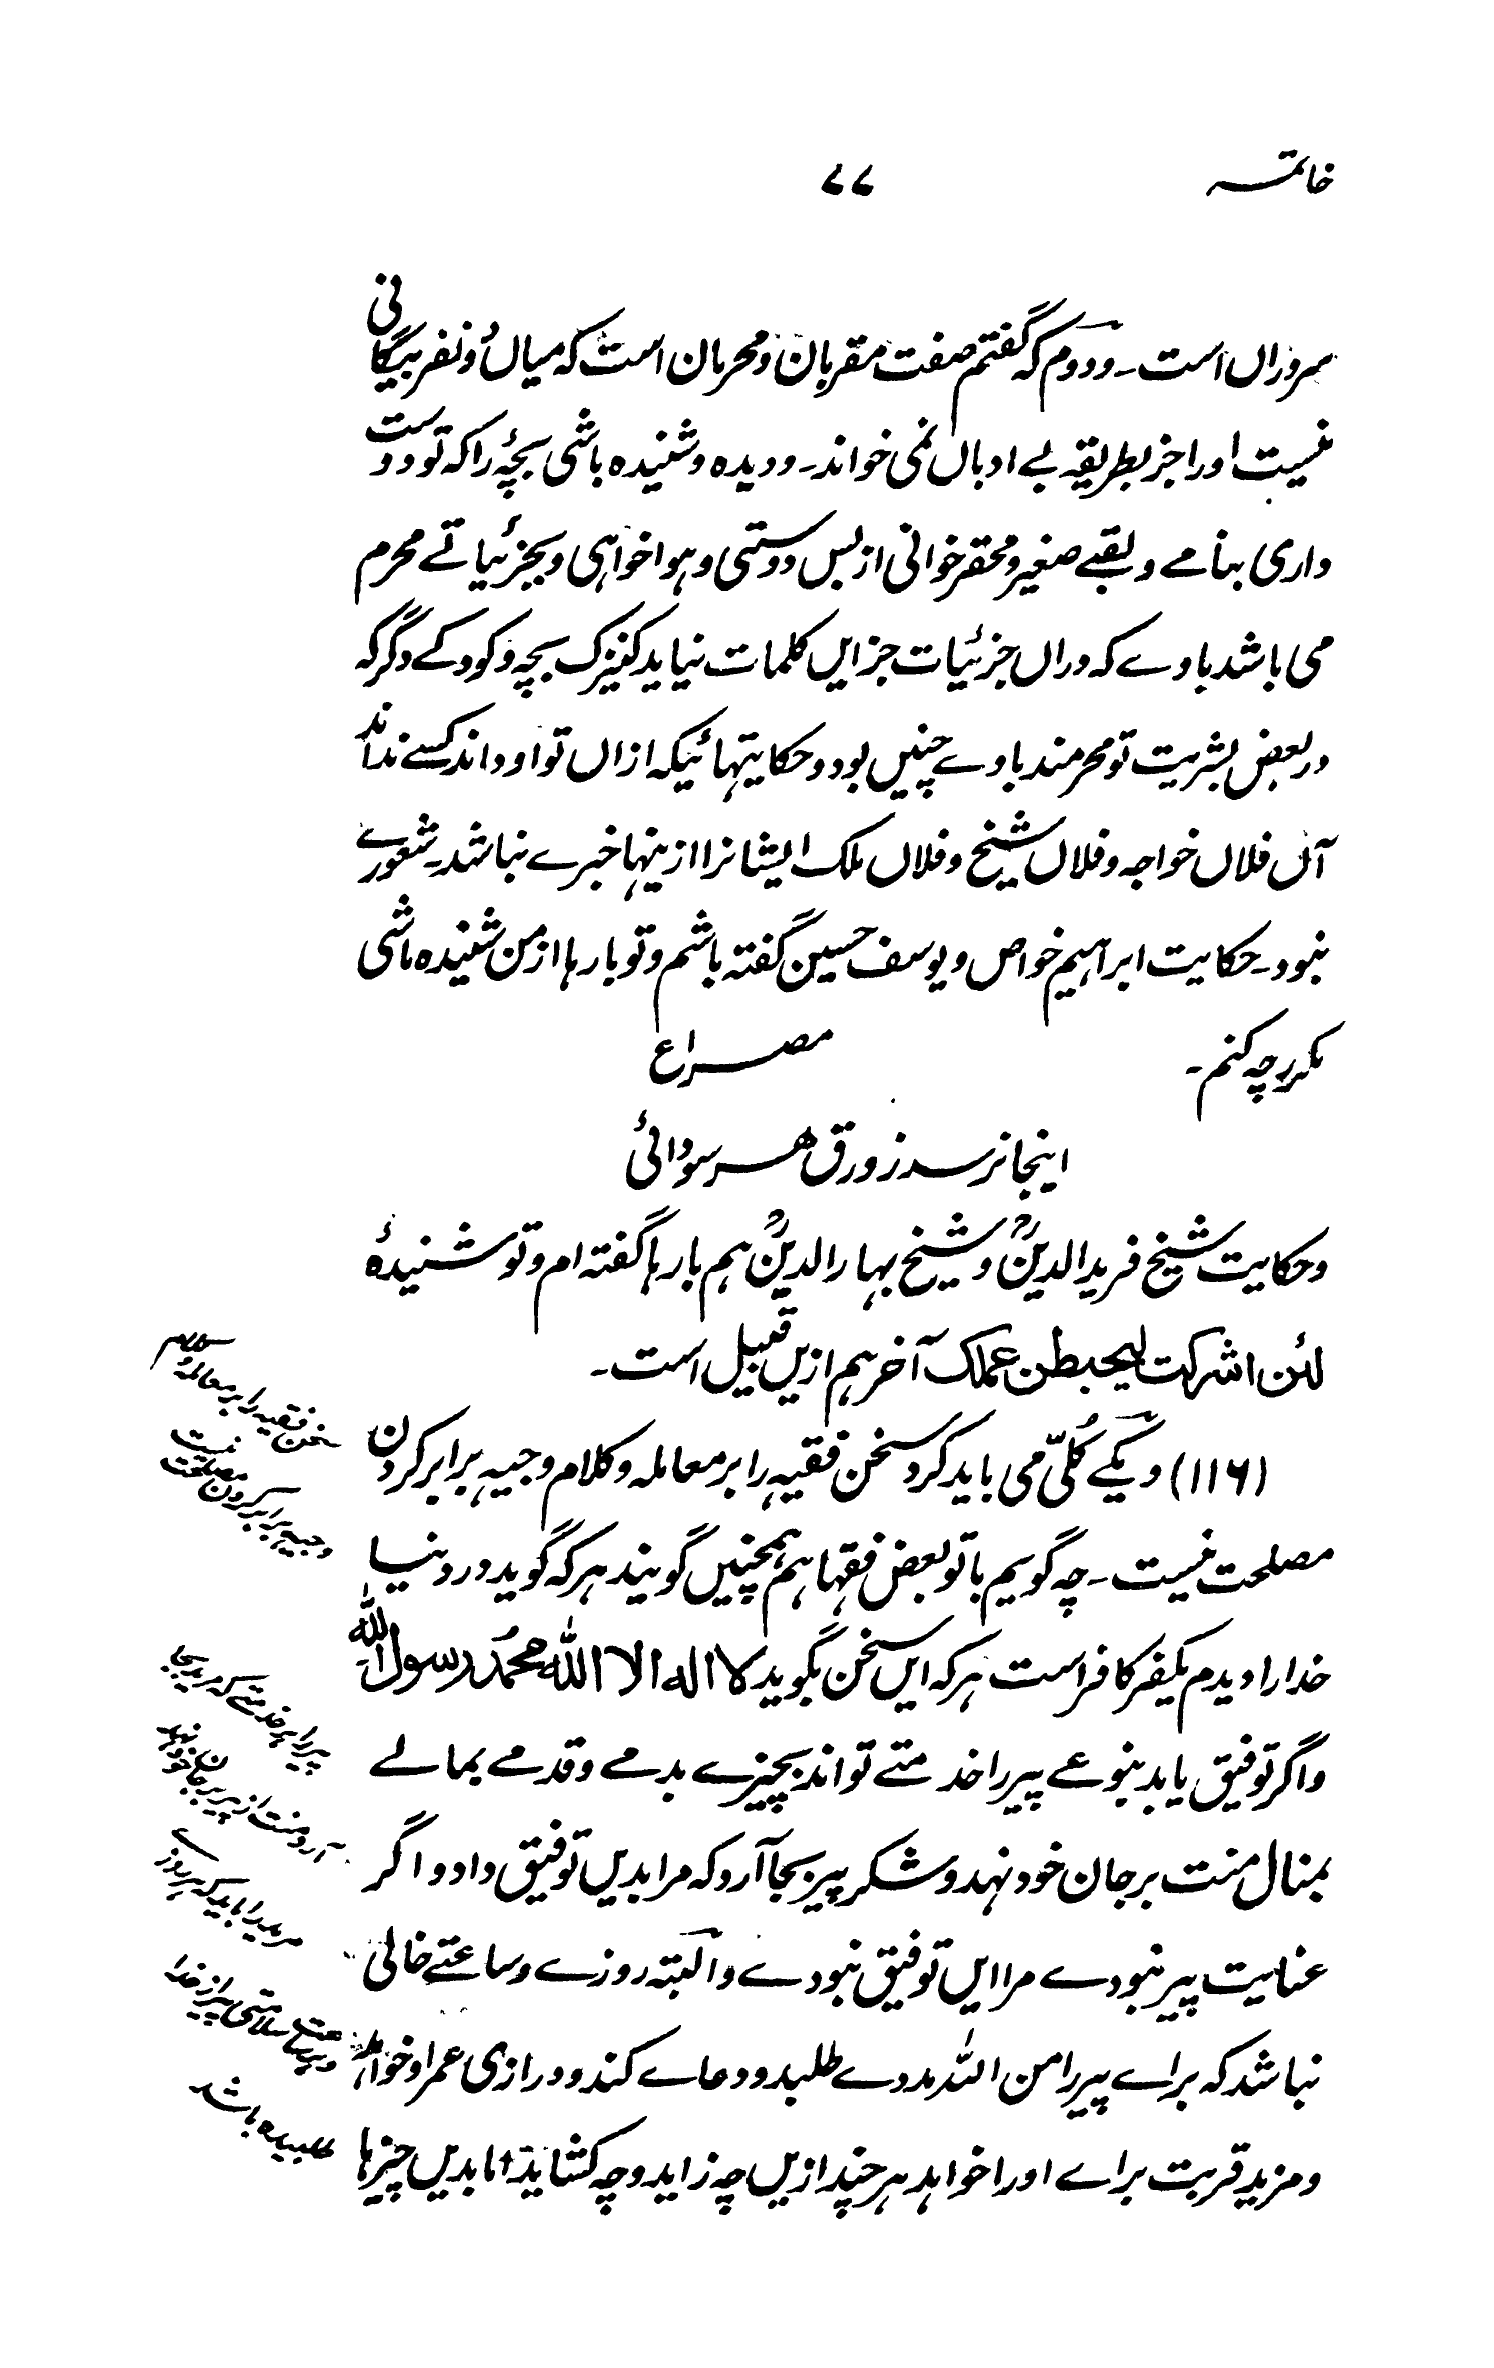 خاتمہ
۷۷
سروراں است۔ ودوم کہ گفتم صفت مقربان ومحرمان است کہ میاں دو نفر بیگانی
نیست اورا جز بطریقہ بے ادباں نمی خواند۔ ودیدہ وشنیدہ باشی بچۂ را کہ تو دوست
داری بنامے ولقبے صغیر ومحقر خوانی از بس دوستی وہوا خواہی وبجزئیاتے محرم
می باشد باوے کہ دراں جزئیات جز ایں کلمات نیاید کنیزک بچہ وکودکے دگر کہ
در بعض بشریت تو محرمند باوے چنیں بود وحکایتہائیکہ ازاں تو او داند کسے نداند
آں فلاں خواجہ وفلاں شیخ وفلاں ملک ایشانرا ازینہا خبرے نباشد۔ شعورے
نبود۔ حکایت ابراہیم خواص ویوسف حسین گفتہ باشم وتو بارہا از من شنیدہ باشی
مکرر چہ کنم۔
مصراع
اینجا نرسد زورق ہر سودائی
وحکایت شیخ فریدالدینؒ وشیخ بہاء الدینؒ ہم بارہا گفتہ ام وتو شنیدۂ
لئن اشرکت لیحبطن عملک آخر ہم ازیں قبیل است۔
(۱۱۶) ویکے کُلّی می باید کرد سخن فقیہ را بر معاملہ وکلام وجیہ برابر کردن
مصلحت نیست۔ چہ گویم باتو بعض فقہا ہم ہمچنیں گویند ہر کہ گوید در دنیا
خدارا دیدم یکفر کافر است ہر کہ ایں سخن بگوید لا اله الا الله محمد رسول الله
واگر توفیق یابد بنوعے پیر را خدمتے تواند بچیزے بدمے وقدمے بمالے
بمنال منت بر جان خود نہد وشکر پیر بجا آرد کہ مرا بدیں توفیق داد و اگر
عنایت پیر نبودے مرا ایں توفیق نبودے والبتہ روزے وساعتے خالی
نباشد کہ براے پیر را من اللہ مددے طلبد ودعاے کند ودرازی عمر او خواہد
ومزید قربت براے او را خواہد ہر چند ازیں چہ زاید وچہ کشاید اما بدیں چیزہا
سخن فقیہ را بر معاملہ و کلام
وجیہ برابر کردن مصلحت نیست
پیر را ہر خدمتے کہ مرید بجا
آرد منت از پیر بر جان خود نہد
مرید را باید کہ ہر روزے
وہر ساعت سلامتی پیر از خدا
طلبیدہ باشد